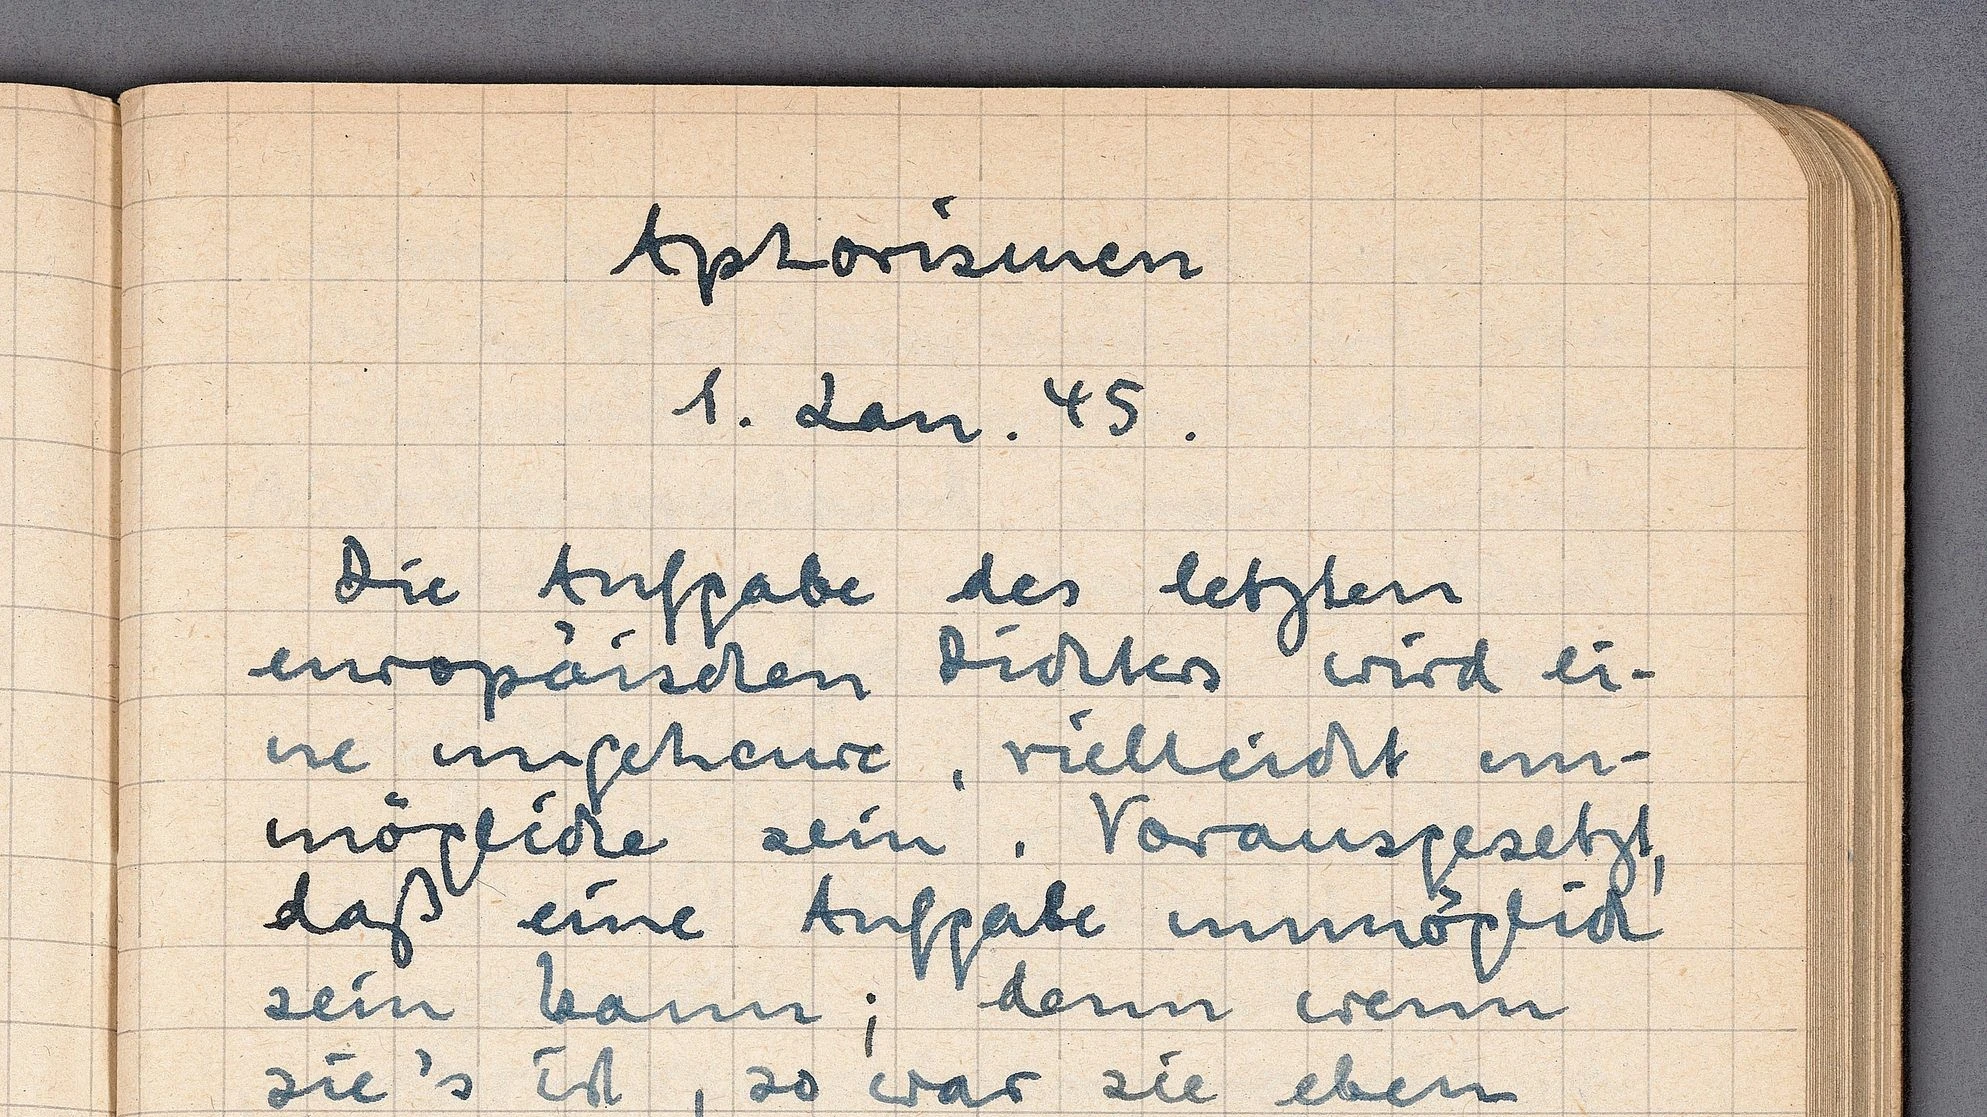 Aphorismen
1. Jan. 45.
Die Aufgabe des letzten
europäischen Dichters wird ei-
ne ungeheure, vielleicht un-
mögliche sein. Vorausgesetzt,
daß eine Aufgabe unmöglich
sein kann; denn wenn
sie's ist, so war sie eben